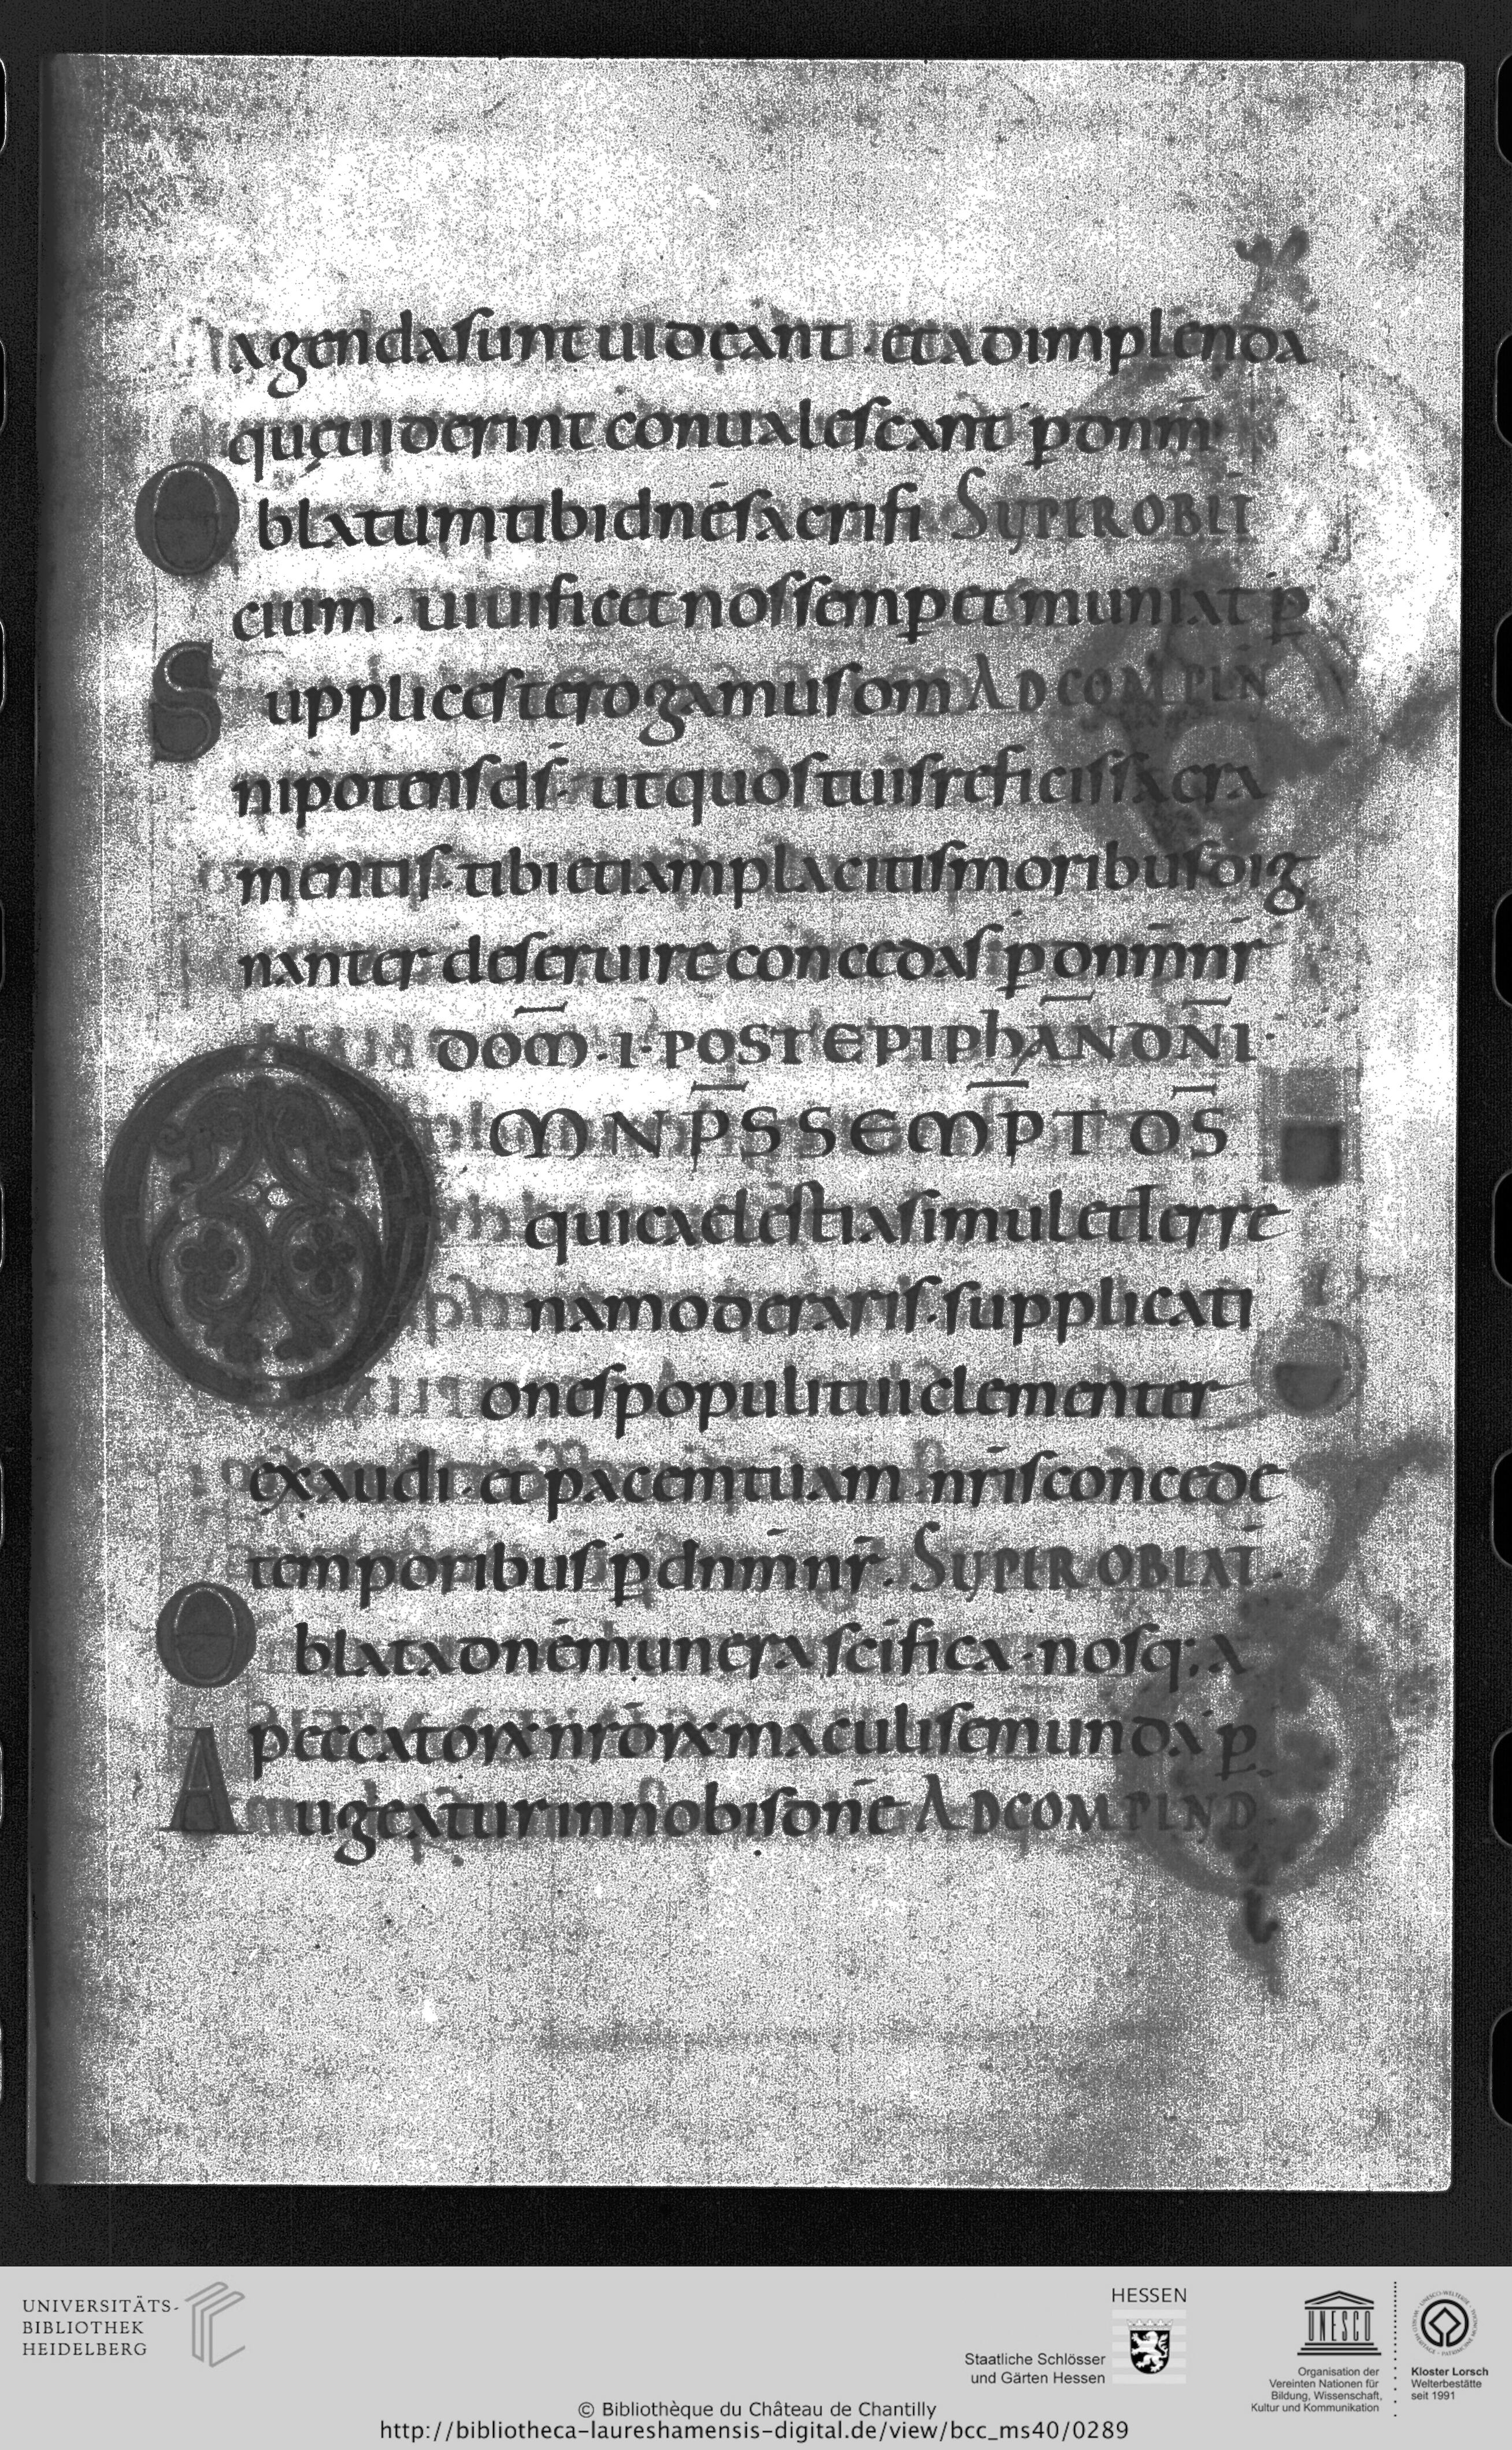 agenda sunt uideant · et ad implenda
quę uiderint conualescant p̄ dnm̄
Oblatum tibi dnē sacrifi SUPER OBLT̄
cium · uiuificet nos semper et muniat p̄
Supplices te rogamus om AD COMPLN̄
nipotens ds̄ · ut quos tuis reficis sacra
mentis · tibi etiam placitis moribus dig
nanter deseruire concedas p̄ dnm̄ nr̄
DOM̄ · I · POST EPIPHAN̄ DOÑI ·
OMNP̄S SEMP̄T D̄S
qui caelestia simul et terre
na moderaris · supplicati
ones populi tui clementer
exaudi · et pacem tuam nr̄is concede
temporibus p̄ dnm̄ nr̄ · SUPER OBLAT̄ ·
Oblata dnē munera scīfica · nosq; a
peccatorꝝ nr̄orꝝ maculis emunda p̄
Augeatur in nobis dnē AD COMPLND
UNIVERSITÄTS-
BIBLIOTHEK
HEIDELBERG
HESSEN
Staatliche Schlösser
und Gärten Hessen
UNESCO
Organisation der
Vereinten Nationen für
Bildung, Wissenschaft,
Kultur und Kommunikation
Kloster Lorsch
Welterbestätte
seit 1991
© Bibliothèque du Château de Chantilly
http://bibliotheca-laureshamensis-digital.de/view/bcc_ms40/0289